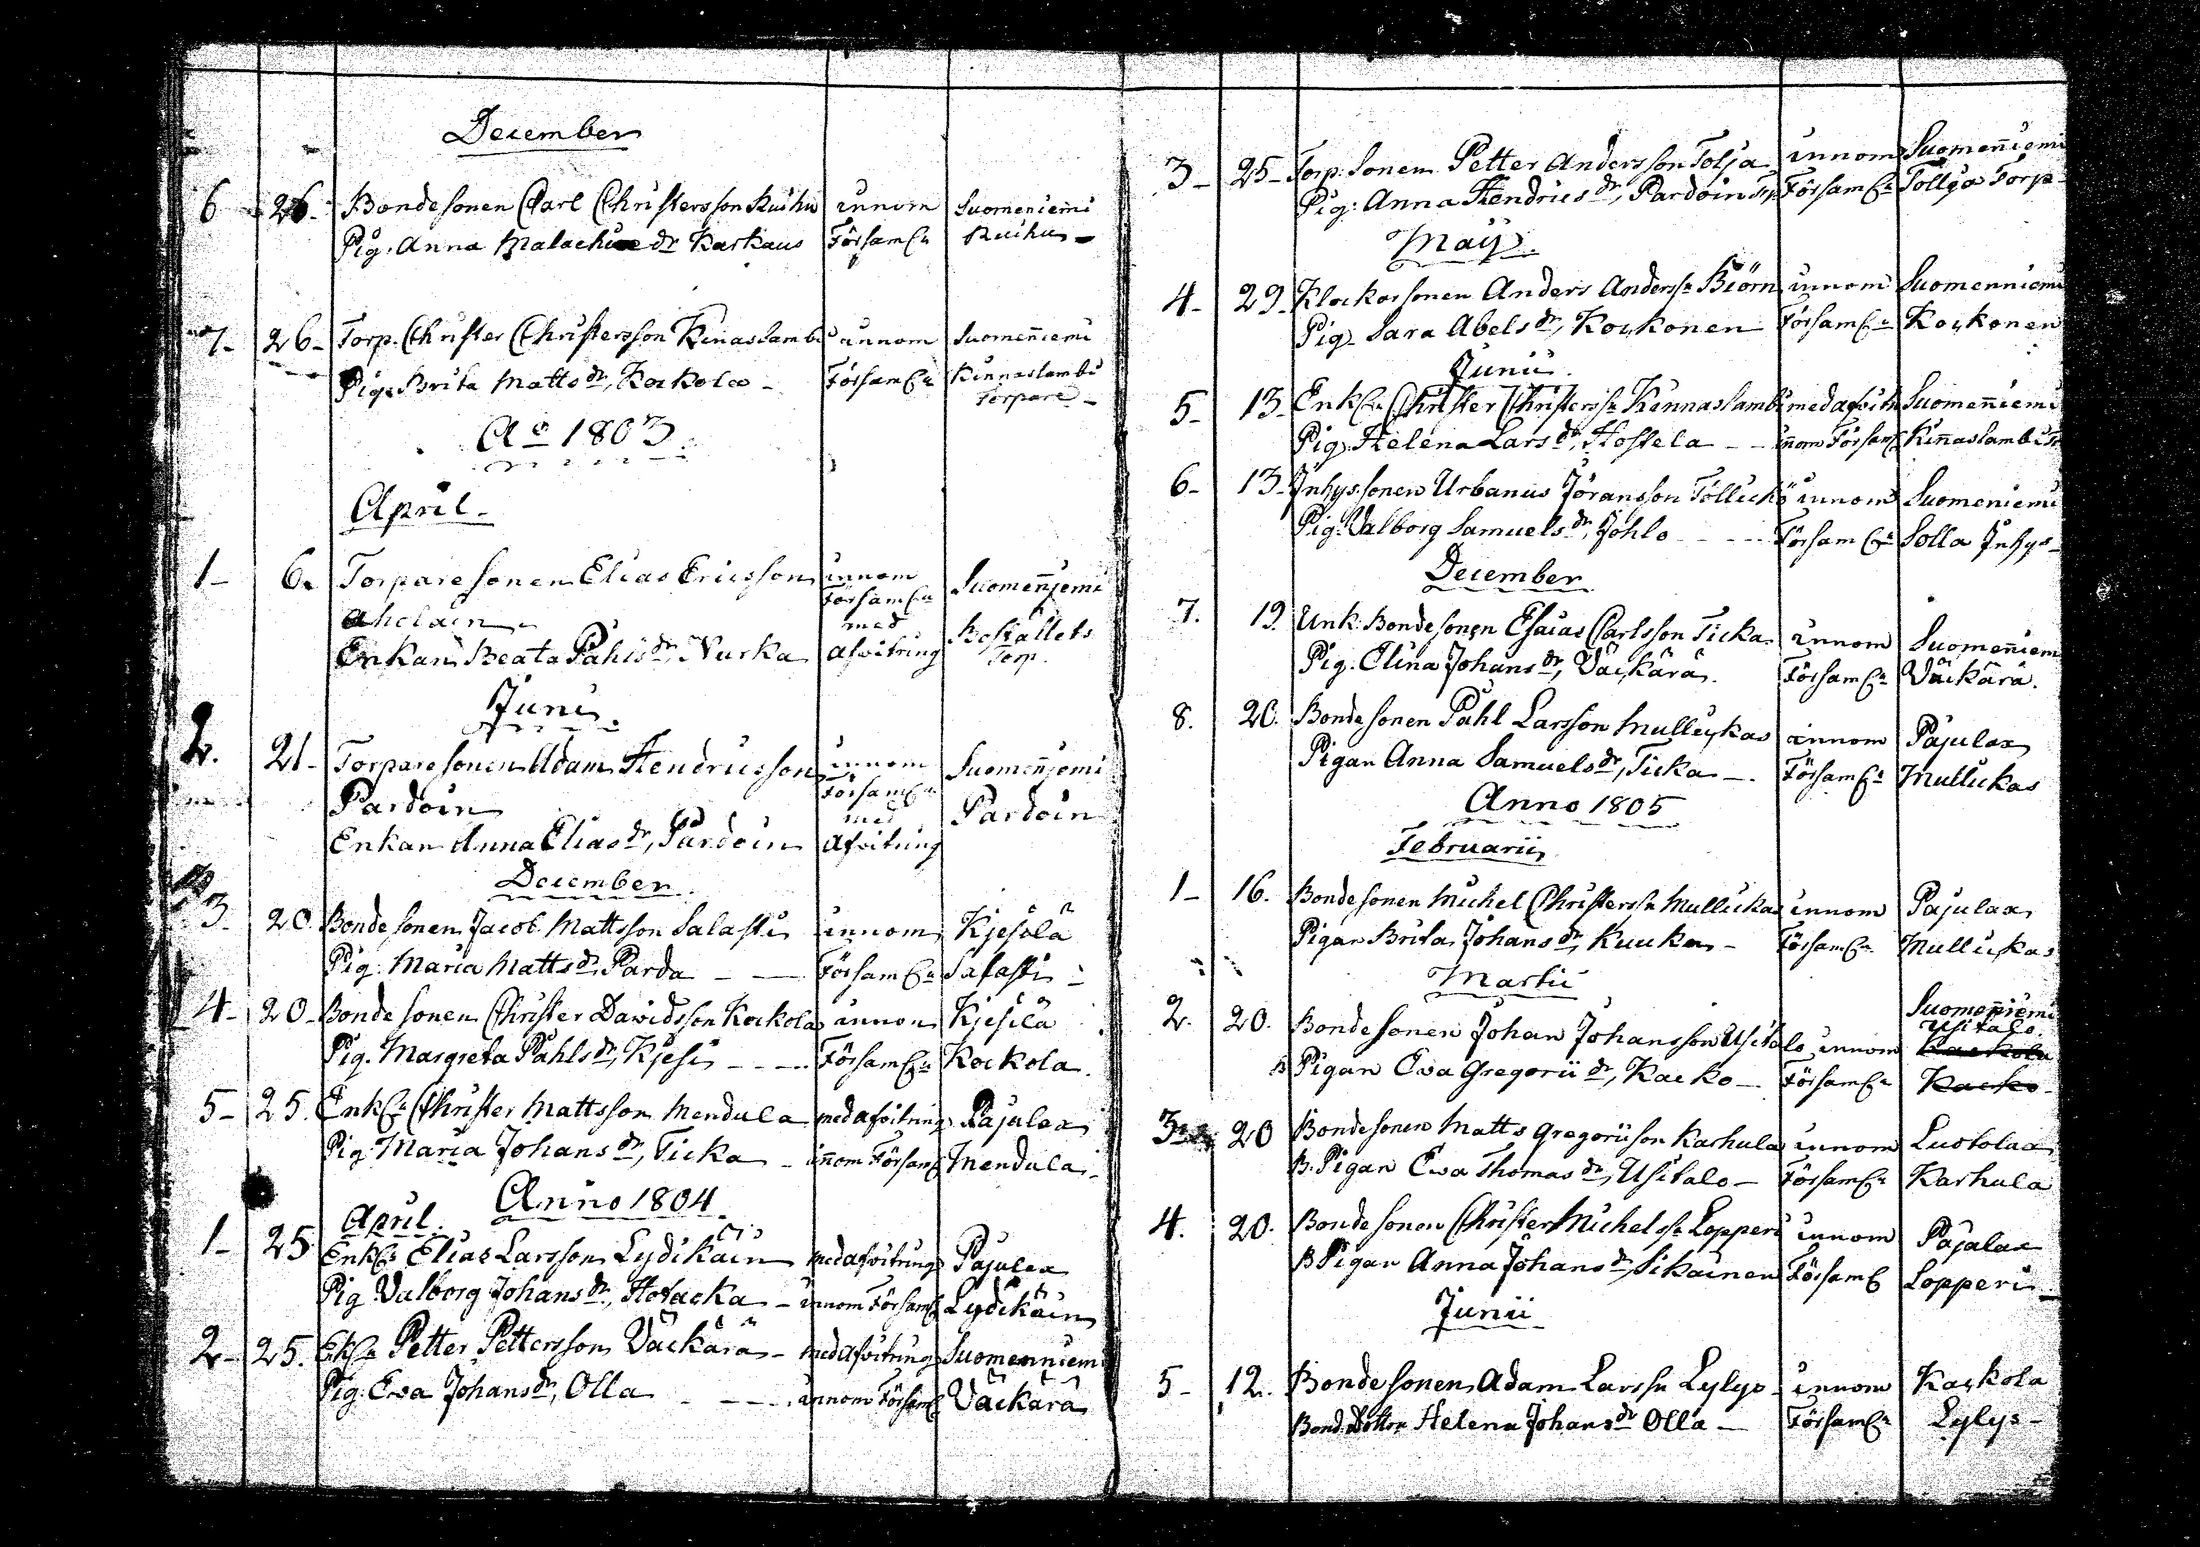 December
6 26. Bondesonen Carl Christersson Ruihu innom Suomeniemi
Pig. Anna Malachiae dr Karkaus Församln Ruihu
7- 26- Torp. Christer Christersson Kinaslambi innom Suomenniemi
Pig. Brita Matts dr, Kockola - Församln Kinnaslambi
Torpare -
Ao 1803.
April.
1- 6. Torparesonen Elias Ericsson innom
Församln Suomenniemi
Aholain med
Enkan Beata Påhls dr, Nurka Afvitring Boställets
Torp.
Juni.
2. 21- Torparesonen Adam Hendricsson innom Suomenniemi
Församln
Pardoin med Pardoin
Enkan Anna Elias dr, Pardoin Afvitring
December
3. 20. Bondesonen Jacob Mattsson Salasti innom Kjesilä
Pig: Maria Matts dr Parda - Församln Salasti -
4- 20- Bondesonen Christer Davidsson Kockola innom Kjesilä
Pig. Margreta Påhls dr, Kjesi - Församln Kockola.
5- 25. Enkln Christer Mattsson Mendula med afvitring Pajulax
Pig: Maria Johans dr, Ticka - innom Församl Mendula -
Anno 1804
April.
1- 25 Enkln Elias Larsson Lydikäin med afvitring Pajulax
Pig Valborg Johans dr, Hotacka - innom Församl Lydikäin
2- 25. Ekln Petter Pettersson Väckärä - med Afvitring Suomenniemi
Pig: Ewa Johans dr, Olla - innom Församl Väckärä
3- 25- Torp: Sonen Petter Andersson Tolja innom Suomenniemi
Pig: Anna Hendrics dr, Pardoin Församln Tollja Torp-
Maij.
4- 29. Klockarsonen Anders Anderssn Biörn innom Suomenniemi
Pig. Sara Abels dr, Kockonen Församln Kockonen
Junii.
5- 13- Enkln Christer Christerssn Kinnaslambi med afvitr Suomenniemi
Pig: Helena Lars dr, Hostela - innom Församl Kinnaslambi
6- 13- Inhys:sonen Urbanus Jöransson Töllickö innom Suomeniemi
Pig: Valborg Samuels dr, Johlo - Församln Solla Inhys-
December
7. 19. Unk: Bondesonen Esaias Carlsson Ticka innom Suomenniem
Pig: Elina Johans dr, Väckärä. Församln Väckärä.
8. 26. Bondesonen Påhl Larsson Mullickas innom Pajulax
Pigan Anna Samuels dr, Ticka - Församln Mullickas
Anno 1805
Februarii
1- 16. Bondesonen Michel Christerssn Mullickas innom Pajulax
Pigan Brita Johans dr, Kuuka - Församln Mullickas
Martii
Suomenniemi
2. 20. Bondesonen Johan Johansson Usitalo innom Usitalo.
B Pigan Ewa Gregorii dr, Kacko - Församln Kacko
3 20 Bondesonen Matts Gregorii son Karhula innom Luotolax
B. Pigan Ewa Thomas dr, Usitalo - Församln Karhula
4. 20. Bondesonen Christer Michelssn Lopperi innom Pajulax
B Pigan Anna Johans dr, Sikainen Församl Lopperi
Junii
5- 12. Bondesonen Adam Larssn Lylys innom Kaskola
Bond.Dottren Helena Johans dr Olla - Församln Lylys -